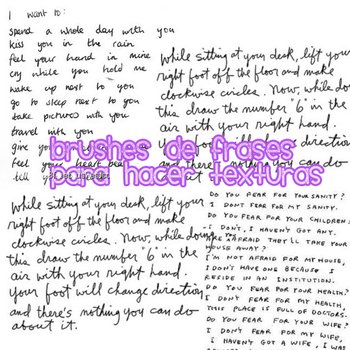 I want to:
spend a whole day with you
kiss you in the rain
feel your hand in mine
cry while you hold me
wake up next to you
go to sleep next to you
take pictures with you
travel with you
give you
feel your heart beat
tell you
While sitting at your desk, lift your
right foot off the floor and make
clockwise circles. Now, while doing
this draw the number "6" in the
air with your right hand.
Your foot will change direction
and there's nothing you can do
brushes de frases
para hacer texturas
While sitting at your desk, lift your
right foot off the floor and make
clockwise circles. Now, while doing
this draw the number "6" in the
air with your right hand.
Your foot will change direction
and there's nothing you can do
about it.
DO YOU FEAR FOR YOUR SANITY?
I DON'T FEAR FOR MY SANITY.
DO YOU FEAR FOR YOUR CHILDREN.
I DON'T, I HAVEN'T GOT ANY.
AFRAID THEY'LL TAKE YOUR
HOUSE AWAY?
I'M NOT AFRAID FOR MY HOUSE,
I DON'T HAVE ONE BECAUSE I
RESIDE IN AN INSTITUTION.
DO YOU FEAR FOR YOUR HEALTH?
I DON'T FEAR FOR MY HEALTH,
THIS PLACE IS FULL OF DOCTORS.
DO YOU FEAR FOR YOUR WIFE?
I DON'T FEAR FOR MY WIFE,
I HAVEN'T GOT A WIFE, I WAS